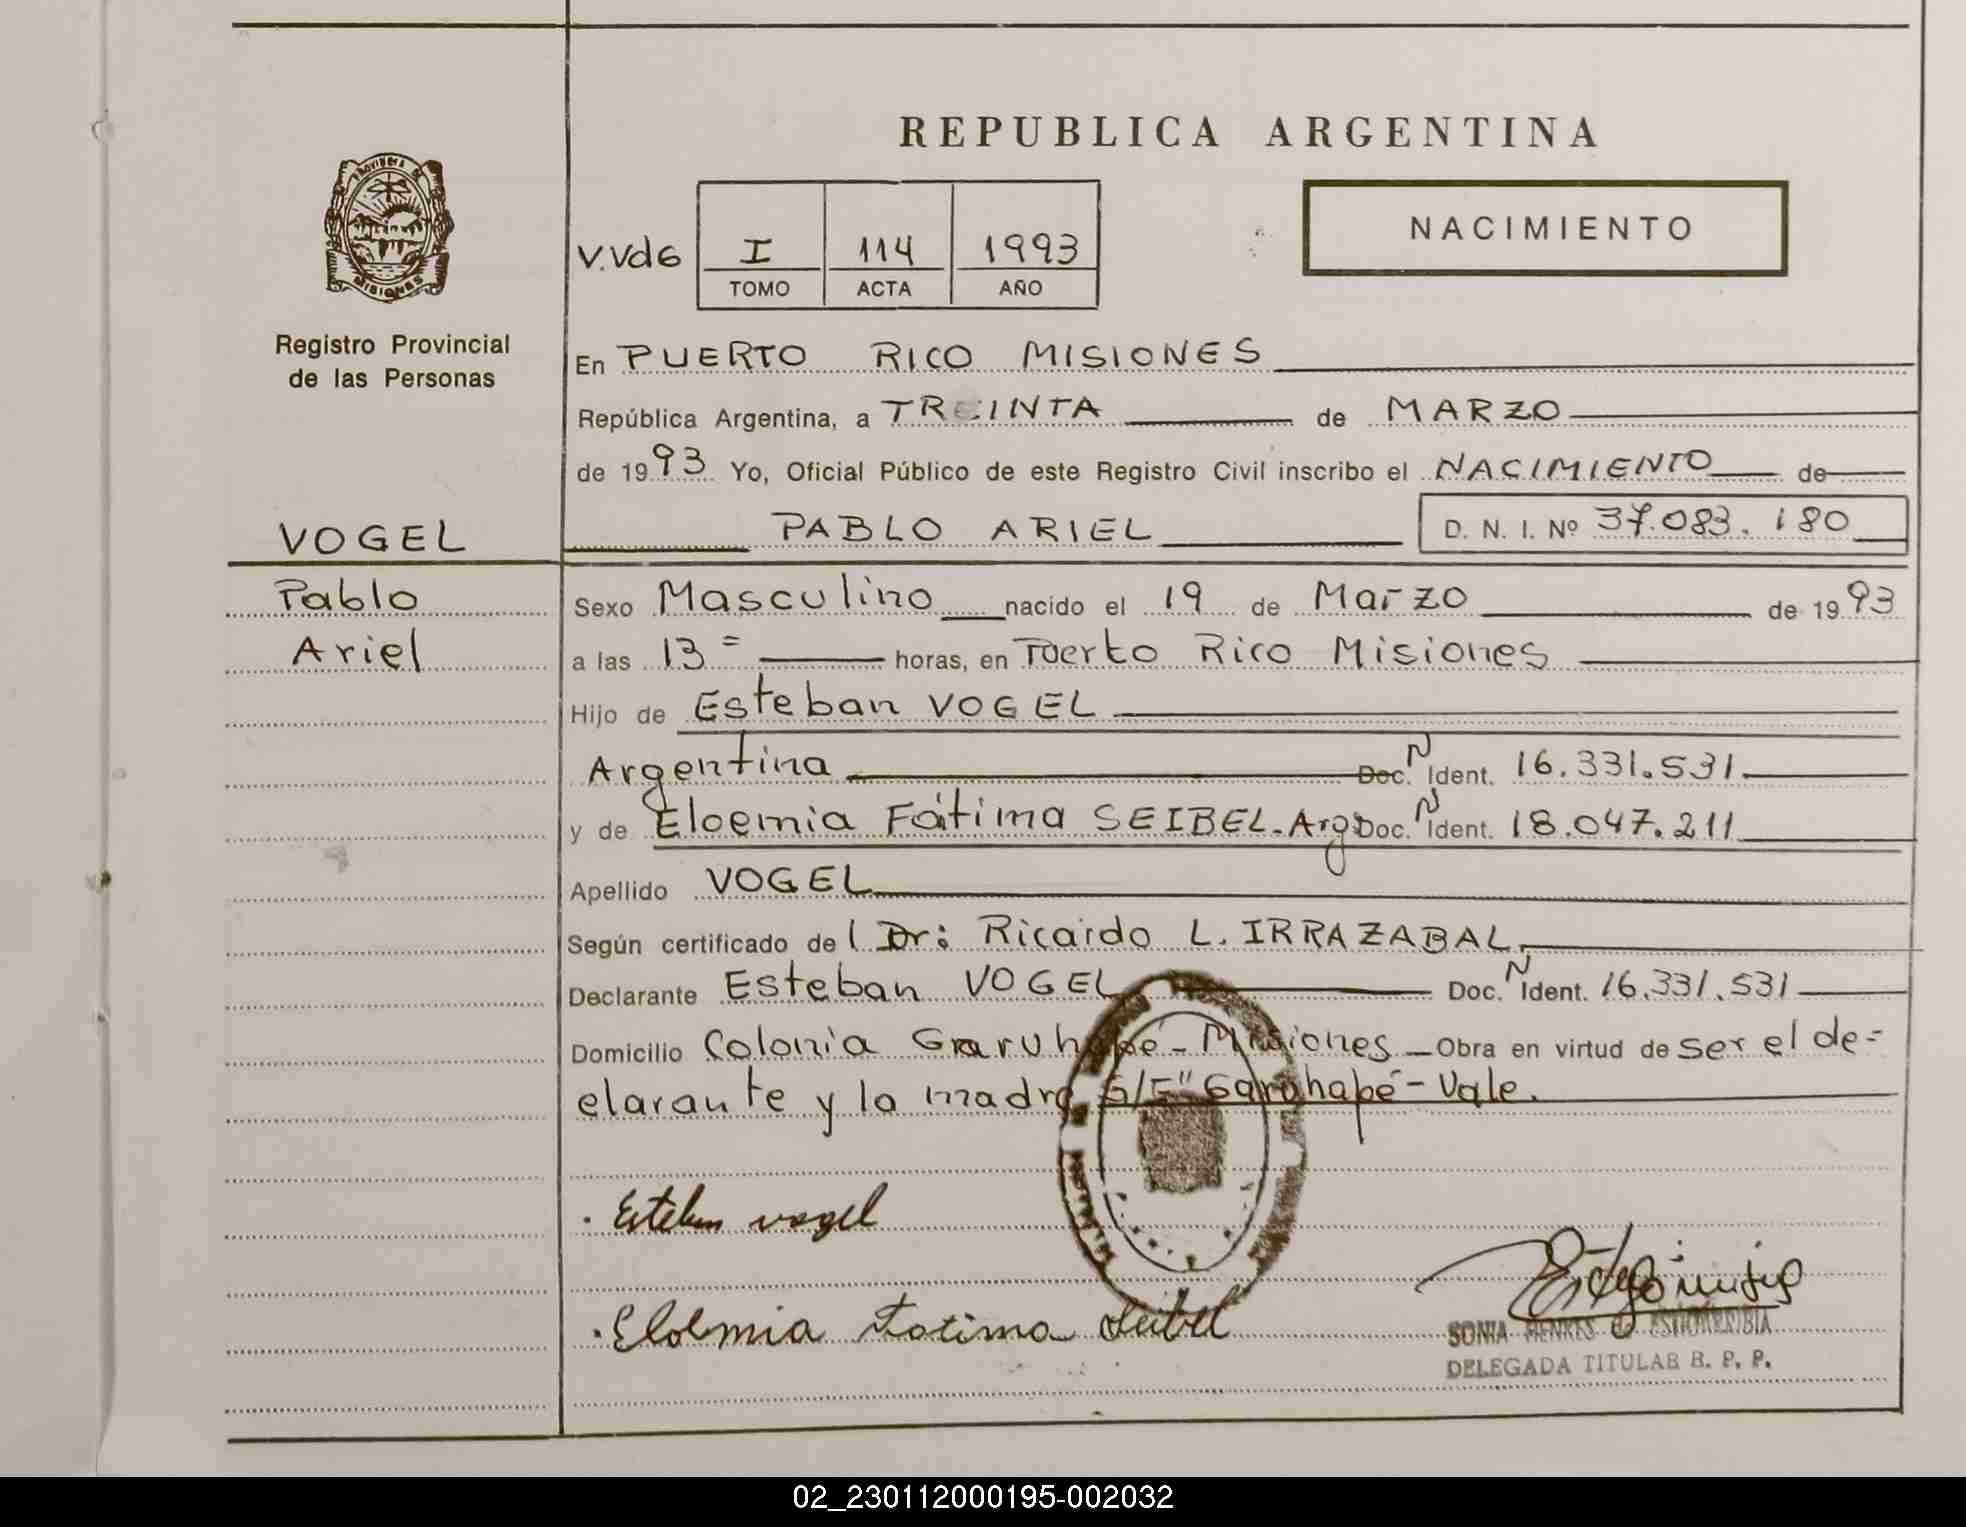 REPUBLICA ARGENTINA
PROVINCIA DE
MISIONES
Registro Provincial
de las Personas
NACIMIENTO
V.Vd6 I 114 1993
TOMO ACTA AÑO
En PUERTO RICO MISIONES
República Argentina, a TREINTA de MARZO
de 1993 Yo, Oficial Público de este Registro Civil inscribo el NACIMIENTO de
VOGEL PABLO ARIEL D. N. I. Nº 37.083.180
Pablo Sexo Masculino nacido el 19 de Marzo de 1993
Ariel a las 13= horas, en Puerto Rico Misiones
Hijo de Esteban VOGEL
Argentina Doc. N Ident. 16.331.531
y de Eloemia Fátima SEIBEL. Arg. Doc. N Ident. 18.047.211
Apellido VOGEL
Según certificado de l Dr: Ricardo L. IRRAZABAL
Declarante Esteban VOGEL Doc. N Ident. 16.331.531
Domicilio Colonia Garuhapé - Misiones Obra en virtud de ser el de=
clarante y la madre S/E" Garuhapé - Vale.
Esteban vogel
Eloemia Fatima Seibel
SONIA HENKES
DELEGADA TITULAR R. P. P.
02_230112000195-002032